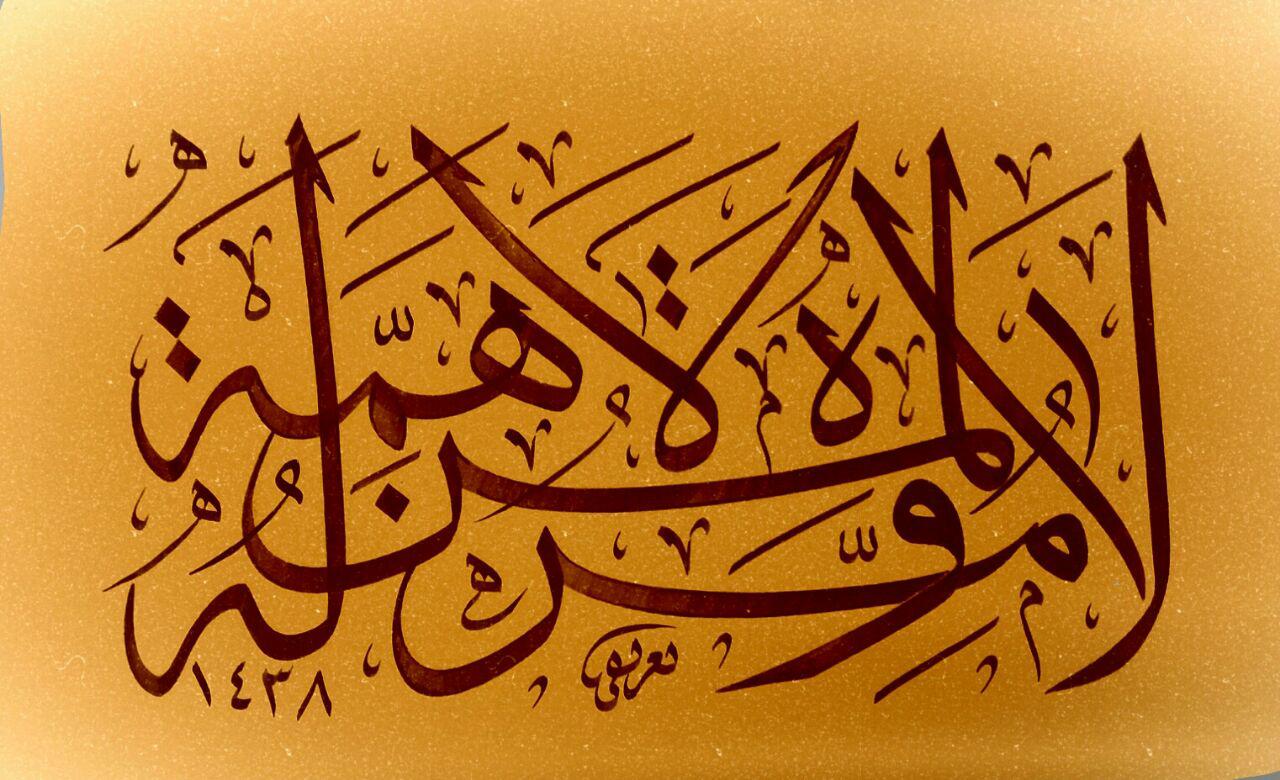 لا مروّة لمن لا همّة له
١٤٣٨